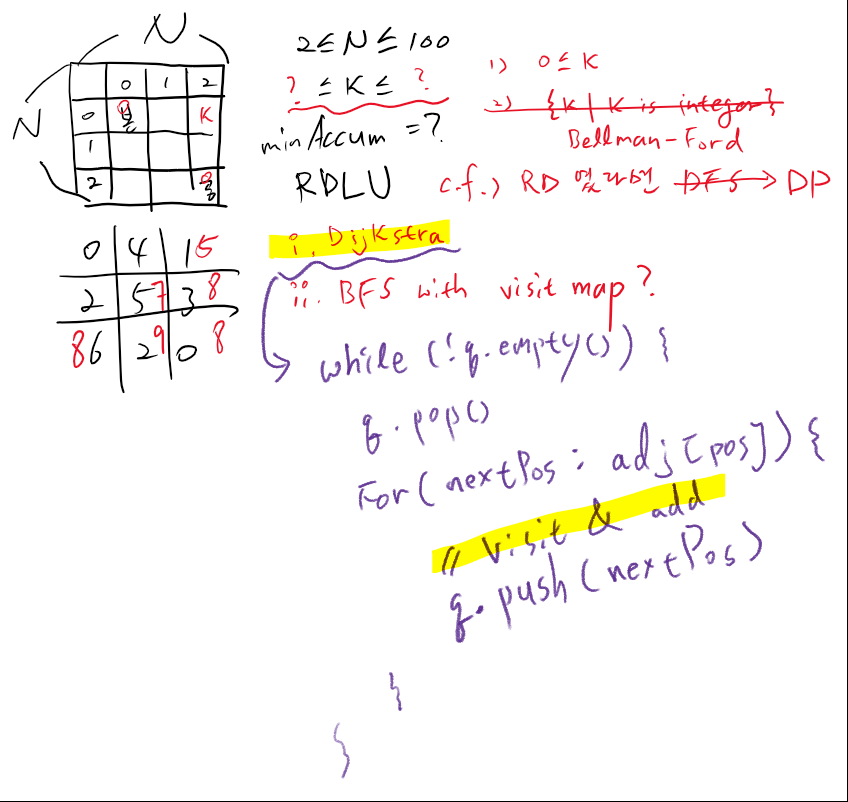 N
N
0 1 2
0 K
1
2
2 ≤ N ≤ 100
? ≤ K ≤ ?
minAccum = ?
RDLU
1) 0 ≤ K
2) {K | K is integer}
Bellman-Ford
c.f.) RD 였다면 DFS → DP
0 4 1 5
2 5 7 3 8
8 6 2 9 0 8
i. Dijkstra
ii. BFS with visit map?
while (!q.empty()) {
q.pop()
For (nextPos : adj[pos]) {
// visit & add
q.push(nextPos)
}
}